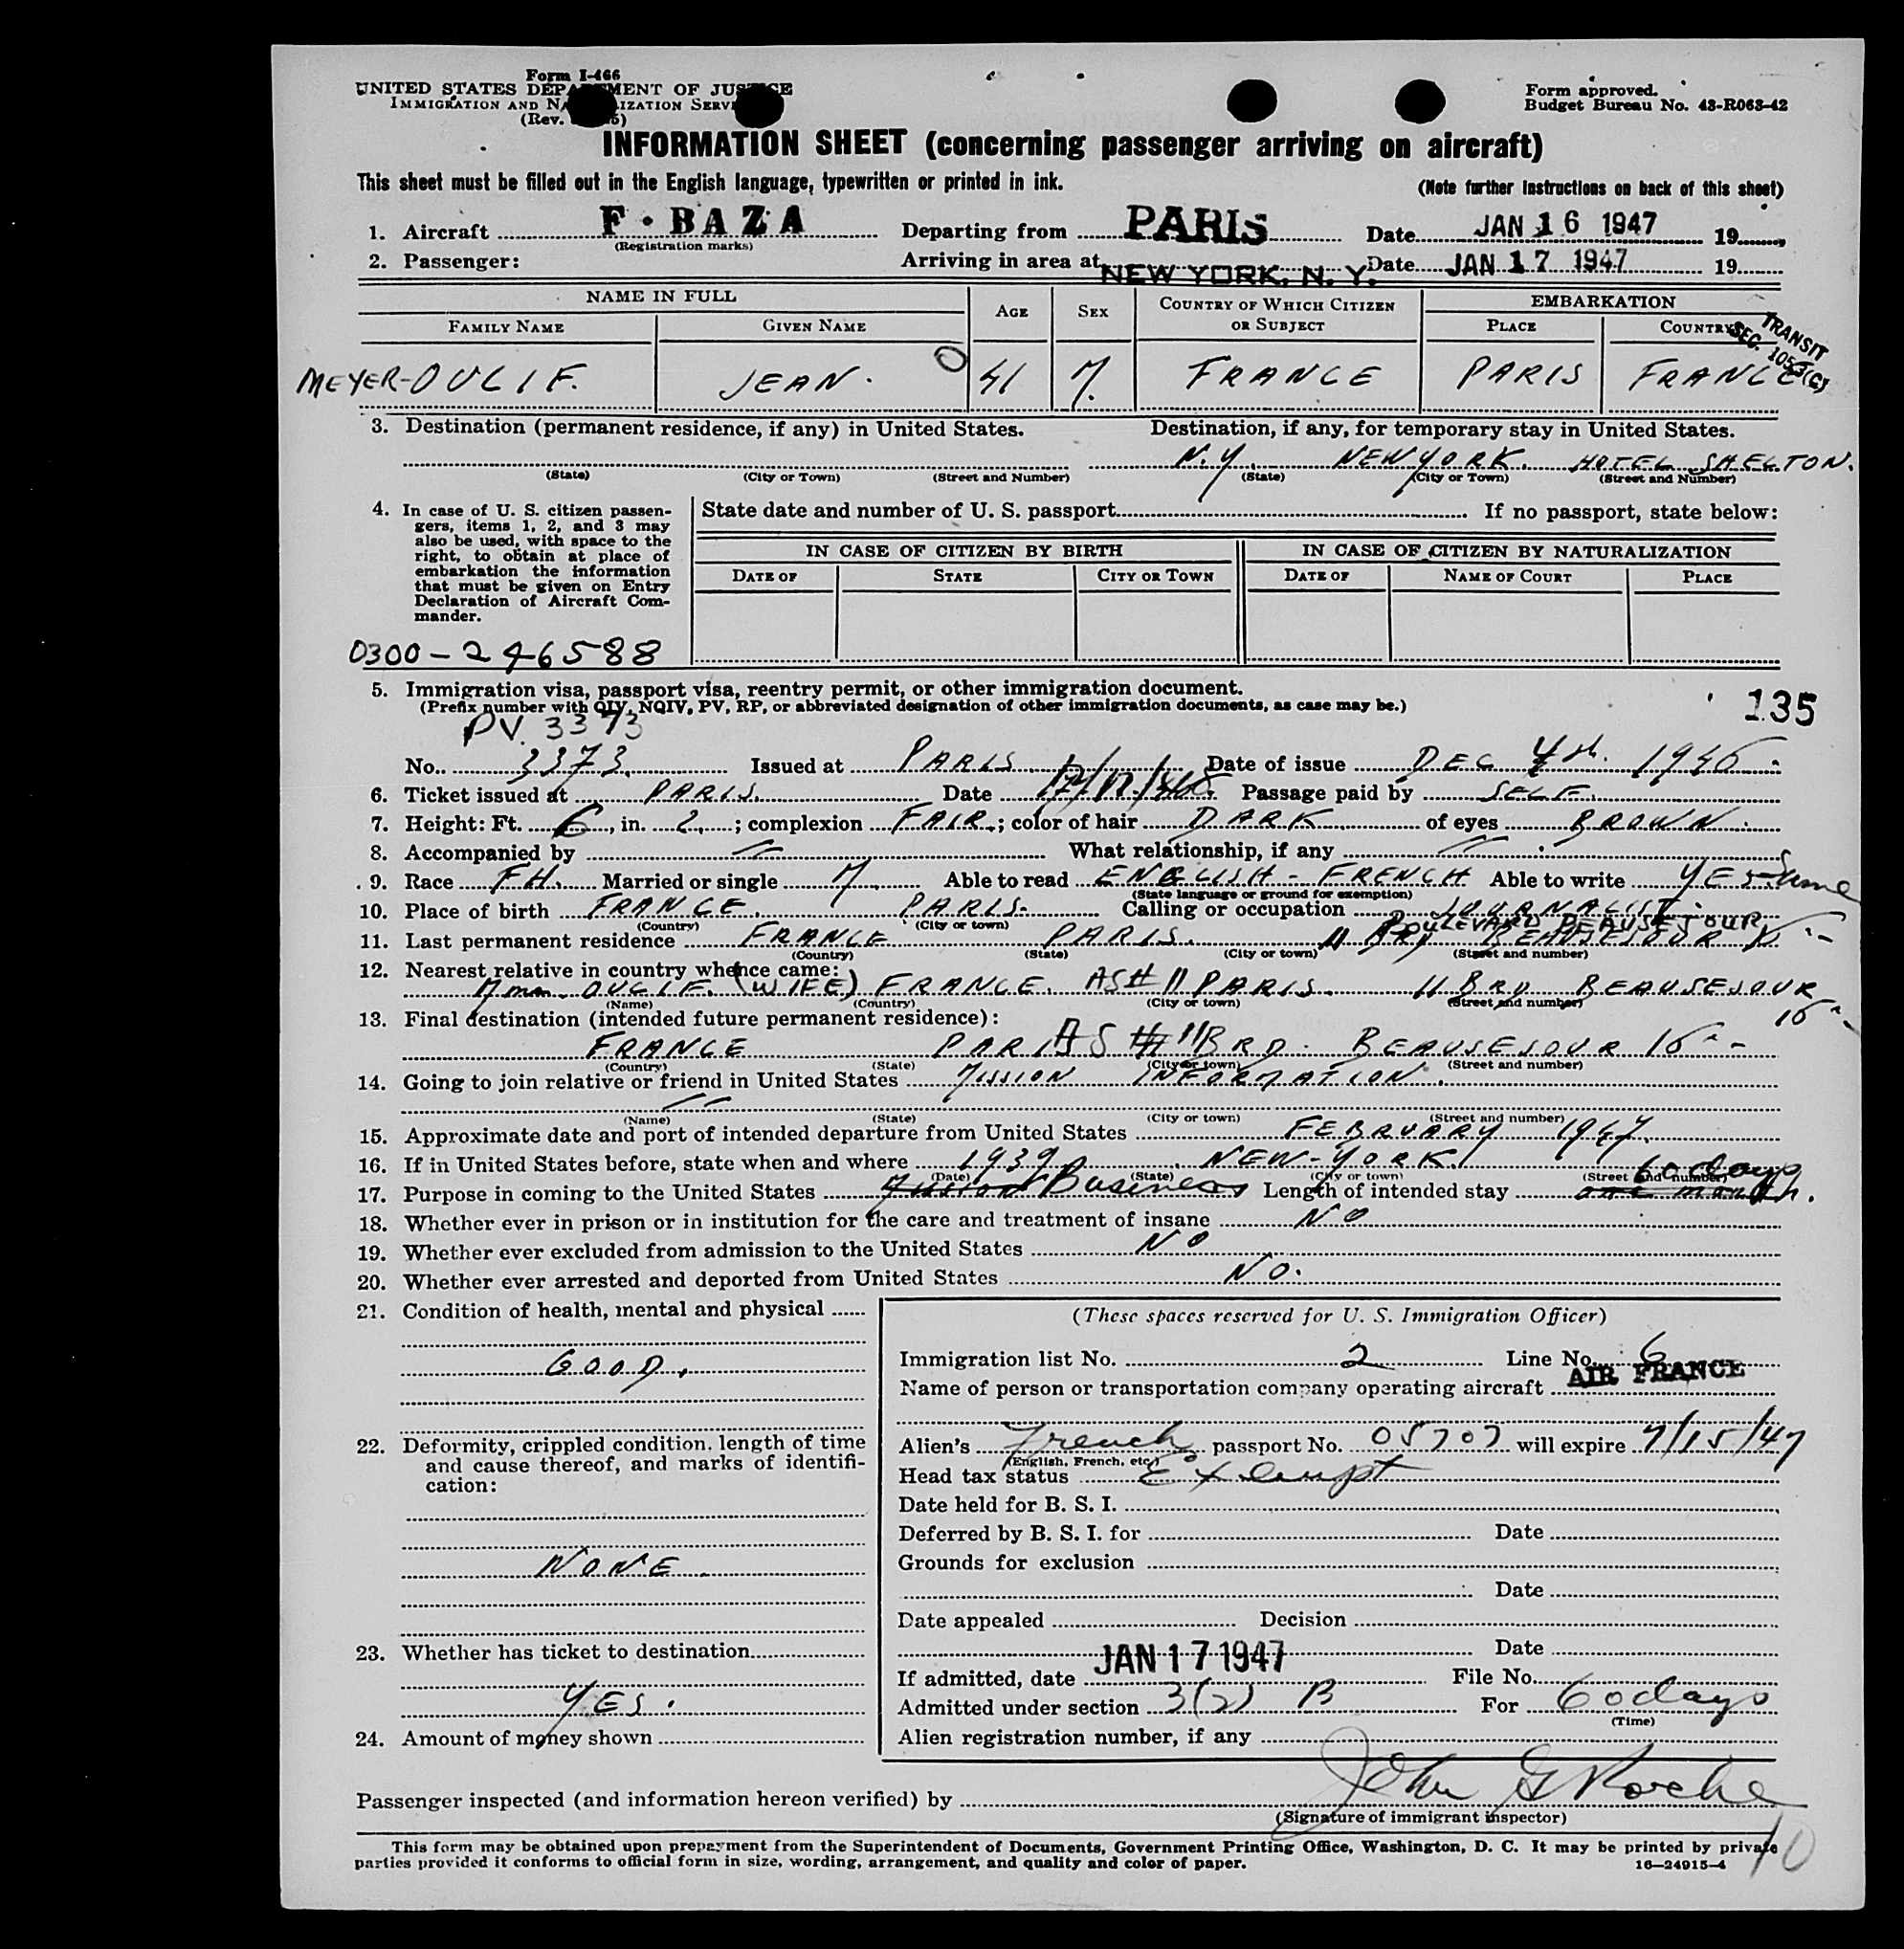 Form I-466
UNITED STATES DEPARTMENT OF JUSTICE
IMMIGRATION AND NATURALIZATION SERVICE
(Rev.
Form approved.
Budget Bureau No. 43-R063-42
INFORMATION SHEET (concerning passenger arriving on aircraft)
This sheet must be filled out in the English language, typewritten or printed in ink.
(Note further instructions on back of this sheet)
1. Aircraft F·BAZA Departing from PARIS Date JAN 16 1947 19
(Registration marks)
2. Passenger: Arriving in area at NEW YORK, N. Y. Date JAN 17 1947 19
NAME IN FULL AGE SEX COUNTRY OF WHICH CITIZEN OR SUBJECT EMBARKATION
FAMILY NAME GIVEN NAME PLACE COUNTRY
TRANSIT
SEC. 1053(C)
MEYER-OULIF. JEAN. 41 M. FRANCE PARIS FRANCE
3. Destination (permanent residence, if any) in United States. Destination, if any, for temporary stay in United States.
N.Y. NEW YORK. HOTEL SHELTON.
(State) (City or Town) (Street and Number) (State) (City or Town) (Street and Number)
4. In case of U. S. citizen passen-
gers, items 1, 2, and 3 may
also be used, with space to the
right, to obtain at place of
embarkation the information
that must be given on Entry
Declaration of Aircraft Com-
mander.
State date and number of U. S. passport If no passport, state below:
IN CASE OF CITIZEN BY BIRTH IN CASE OF CITIZEN BY NATURALIZATION
DATE OF STATE CITY OR TOWN DATE OF NAME OF COURT PLACE
0300-246588
5. Immigration visa, passport visa, reentry permit, or other immigration document.
(Prefix number with QIV, NQIV, PV, RP, or abbreviated designation of other immigration documents, as case may be.)
135
PV 3373
No. 3373 Issued at PARIS Date of issue DEC 4th. 1946
6. Ticket issued at PARIS. Date Passage paid by SELF.
7. Height: Ft. 6, in. 2; complexion FAIR; color of hair DARK of eyes BROWN.
8. Accompanied by What relationship, if any
9. Race FH. Married or single M. Able to read ENGLISH - FRENCH Able to write YES Same
(State language or ground for exemption)
10. Place of birth FRANCE. PARIS. Calling or occupation JOURNALIST.
(Country) (City or town)
BOULEVARD BEAUSEJOUR
11. Last permanent residence FRANCE PARIS. 11 BRD BEAUSEJOUR
(Country) (State) (City or town) (Street and number)
12. Nearest relative in country whence came:
Mme OULIF. (WIFE) FRANCE. PARIS. 11 BRD BEAUSEJOUR
(Name) (Country) (City or town) (Street and number)
16
13. Final destination (intended future permanent residence):
FRANCE PARIS 11 BRD. BEAUSEJOUR 16
(Country) (State) (City or town) (Street and number)
14. Going to join relative or friend in United States MISSION INFORMATION.
(Name) (State) (City or town) (Street and number)
15. Approximate date and port of intended departure from United States FEBRUARY 1947.
16. If in United States before, state when and where 1939 NEW-YORK.
(Date) (State) (City or town) (Street and number)
60 days
17. Purpose in coming to the United States Mission Business Length of intended stay one month.
18. Whether ever in prison or in institution for the care and treatment of insane NO
19. Whether ever excluded from admission to the United States NO
20. Whether ever arrested and deported from United States NO.
21. Condition of health, mental and physical
GOOD.
22. Deformity, crippled condition. length of time
and cause thereof, and marks of identifi-
cation:
NONE.
23. Whether has ticket to destination
YES.
24. Amount of money shown
(These spaces reserved for U. S. Immigration Officer)
Immigration list No. 2 Line No. 6
Name of person or transportation company operating aircraft AIR FRANCE
Alien's French passport No. 05707 will expire 7/15/47
(English, French, etc.)
Head tax status Exempt
Date held for B. S. I.
Deferred by B. S. I. for Date
Grounds for exclusion
Date
Date appealed Decision
Date
If admitted, date JAN 17 1947 File No.
Admitted under section 3(2) B For 60 days
(Time)
Alien registration number, if any
Passenger inspected (and information hereon verified) by John G Roche
(Signature of immigrant inspector)
This form may be obtained upon prepayment from the Superintendent of Documents, Government Printing Office, Washington, D. C. It may be printed by private
parties provided it conforms to official form in size, wording, arrangement, and quality and color of paper. 16—24915-4
10